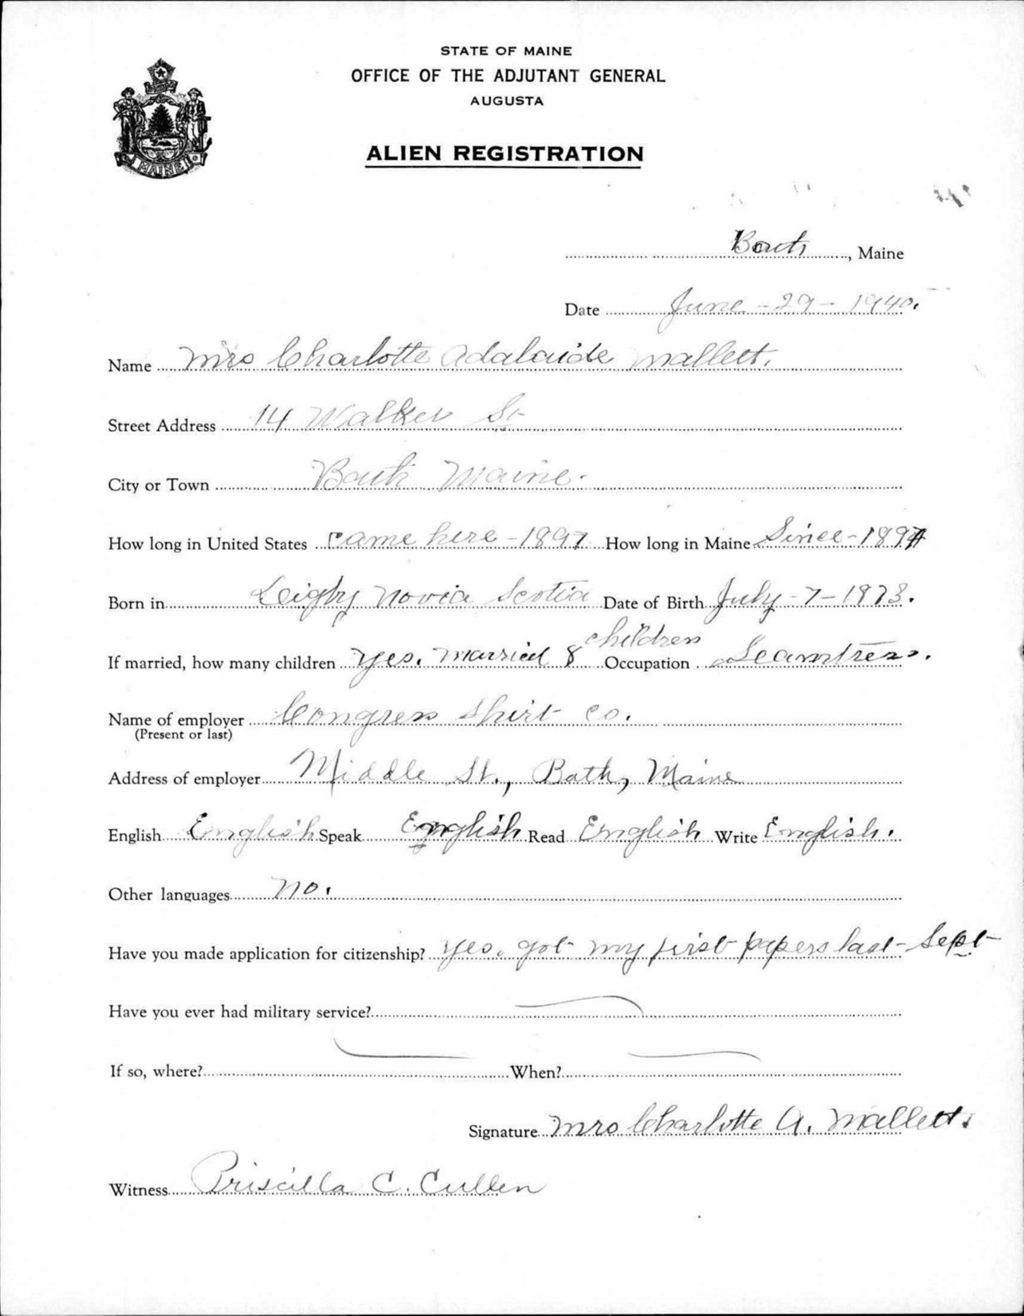 STATE OF MAINE
OFFICE OF THE ADJUTANT GENERAL
AUGUSTA
ALIEN REGISTRATION
MAINE
Bath, Maine
Date June - 29 - 1940.
Name Mrs Charlotte Adalaide Mallett.
Street Address 14 Walker St
City or Town Bath Maine.
How long in United States came here - 1897 How long in Maine Since - 1897
Born in Deigby Novia Scotia Date of Birth July - 7 - 1873.
If married, how many children yes. married 8 children Occupation Seamtress.
Name of employer Congress Shirt Co.
(Present or last)
Address of employer Middle St., Bath, Maine
English English Speak English Read English Write English.
Other languages no.
Have you made application for citizenship? yes. got my first papers last - Sept
Have you ever had military service?
If so, where? When?
Signature Mrs Charlotte A. Mallett.
Witness Priscilla C. Cullen